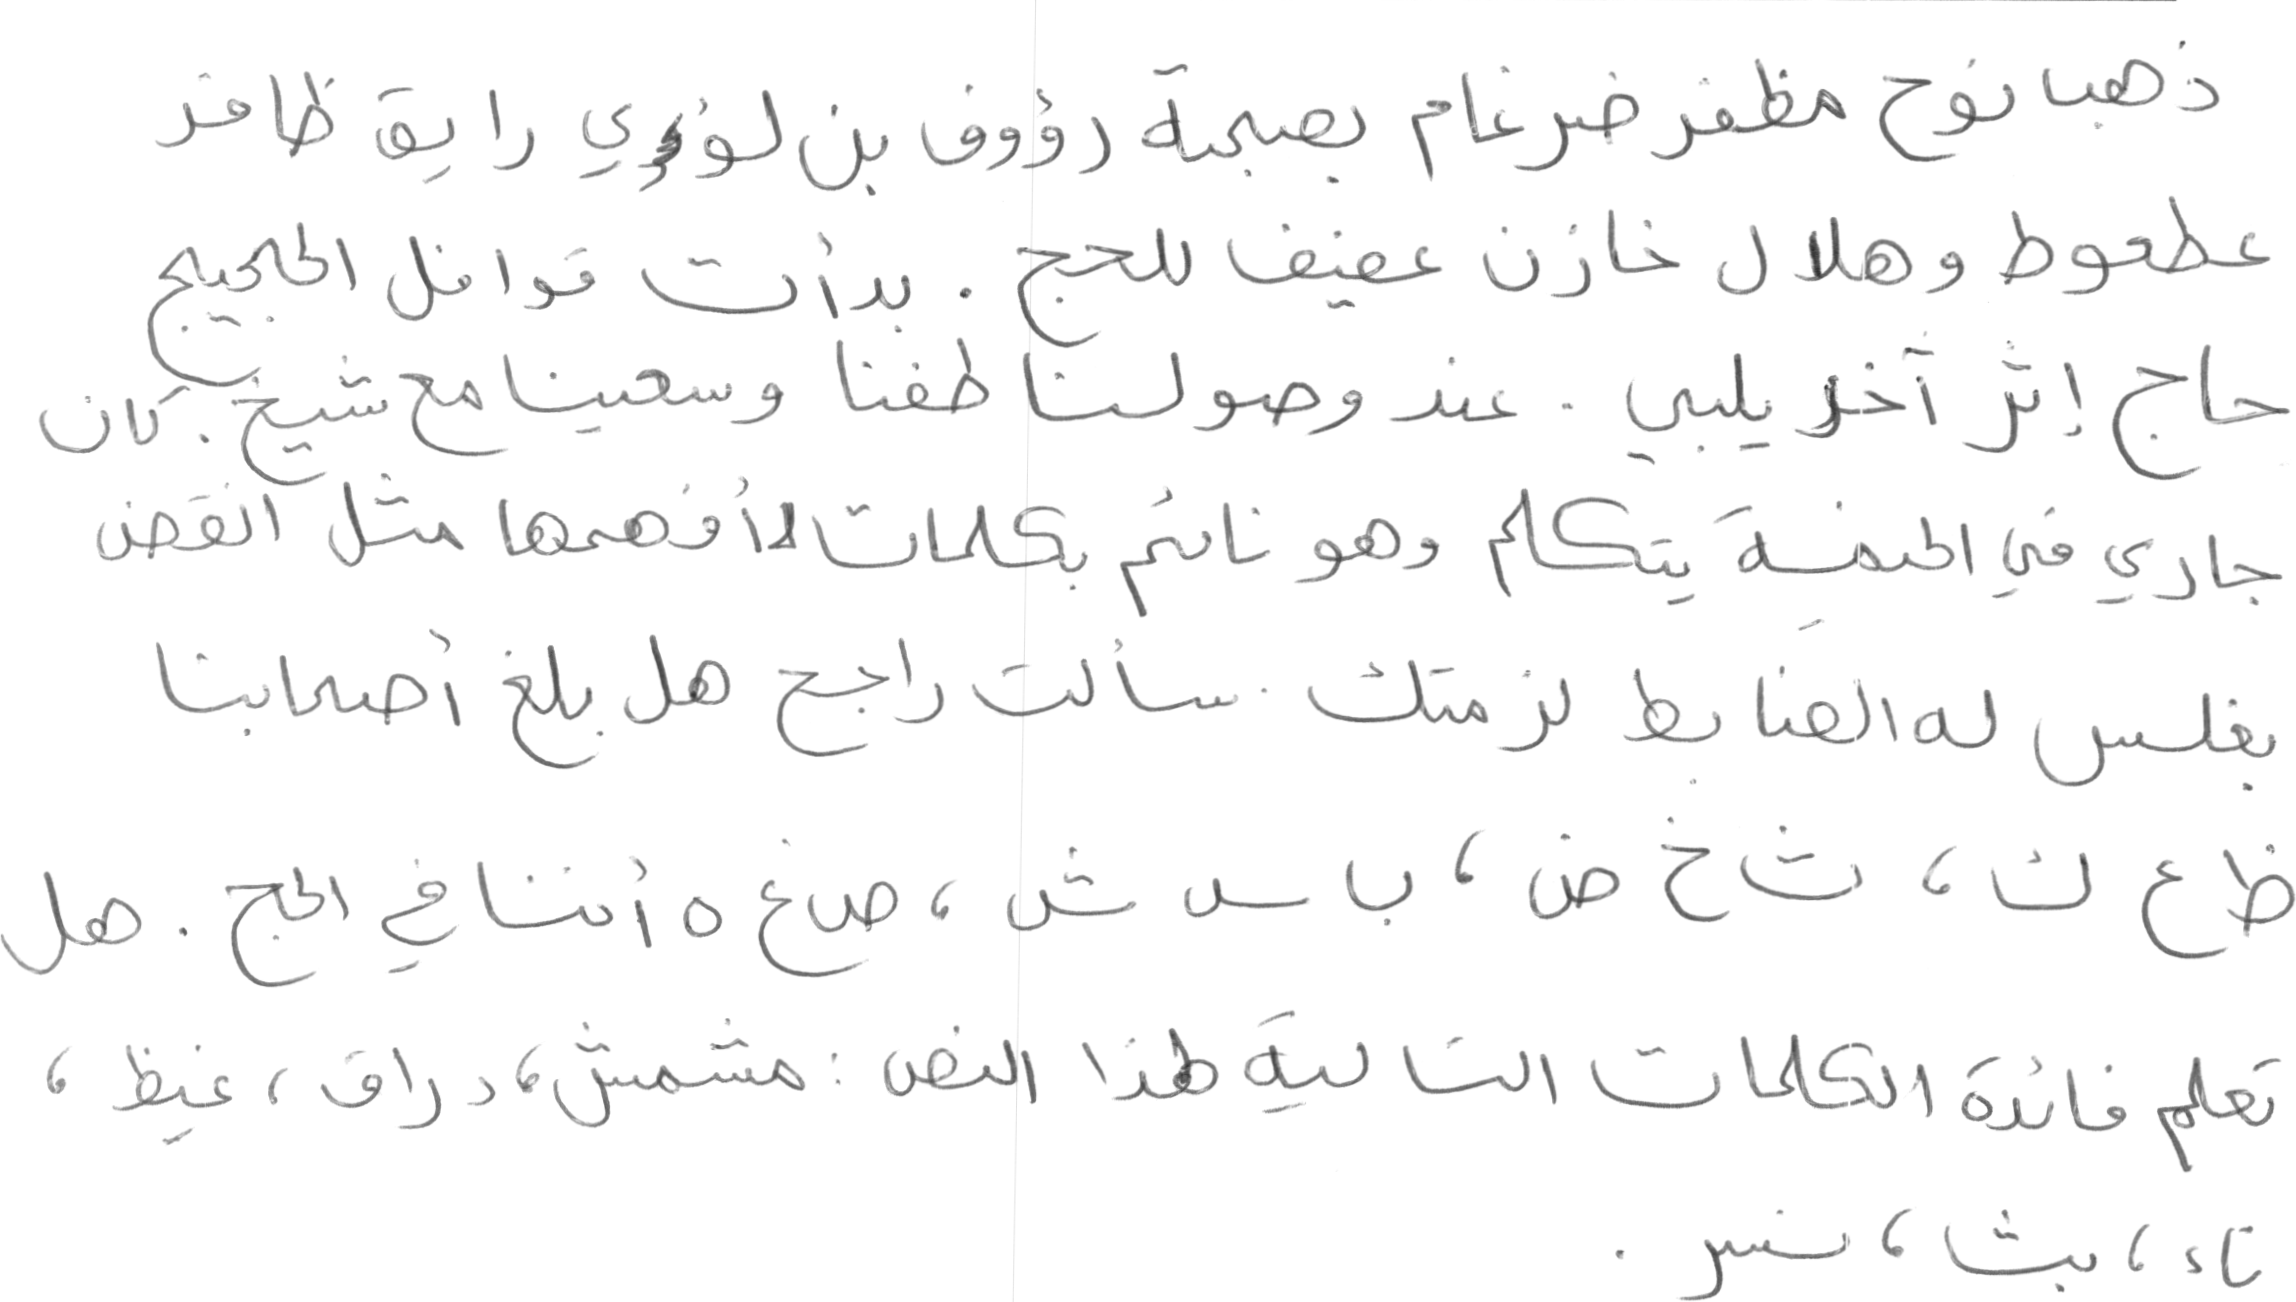 ذهبنا نوح مظفر ضرغام بصحبة رؤوف بن لؤي رايق ظافر
عطعوط وهلال خازن عفيف للحج . بدأت قوافل الحجيج
حاج إثر آخر يلبي . عند وصولنا طفنا وسعينا مع شيخ . كان
جاري في الخيمة يتكلم وهو نائم بكلمات لا أفهمها مثل انقض
بغلس له الضابط لزمتك . سألت راجح هل بلغ أصحابنا
ظ ع ك ، ث خ ض ، ب س ش ، ص غ ه أننا في الحج . هل
تعلم فائدة الكلمات التالية لهذا النص : مشمش ، دراق ، غيظ ،
تاء ، بث ، نسر .